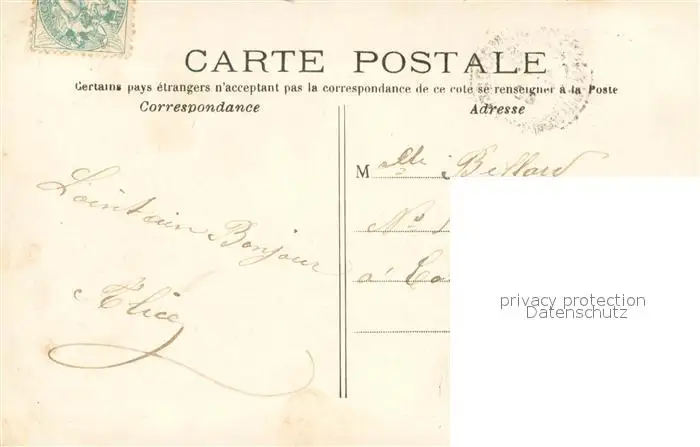 CARTE POSTALE
Certains pays étrangers n'acceptant pas la correspondance de ce coté se renseigner à la Poste
Correspondance
Adresse
Mlle Bellard
No
à
Lointain Bonjour
Alice
privacy protection
Datenschutz